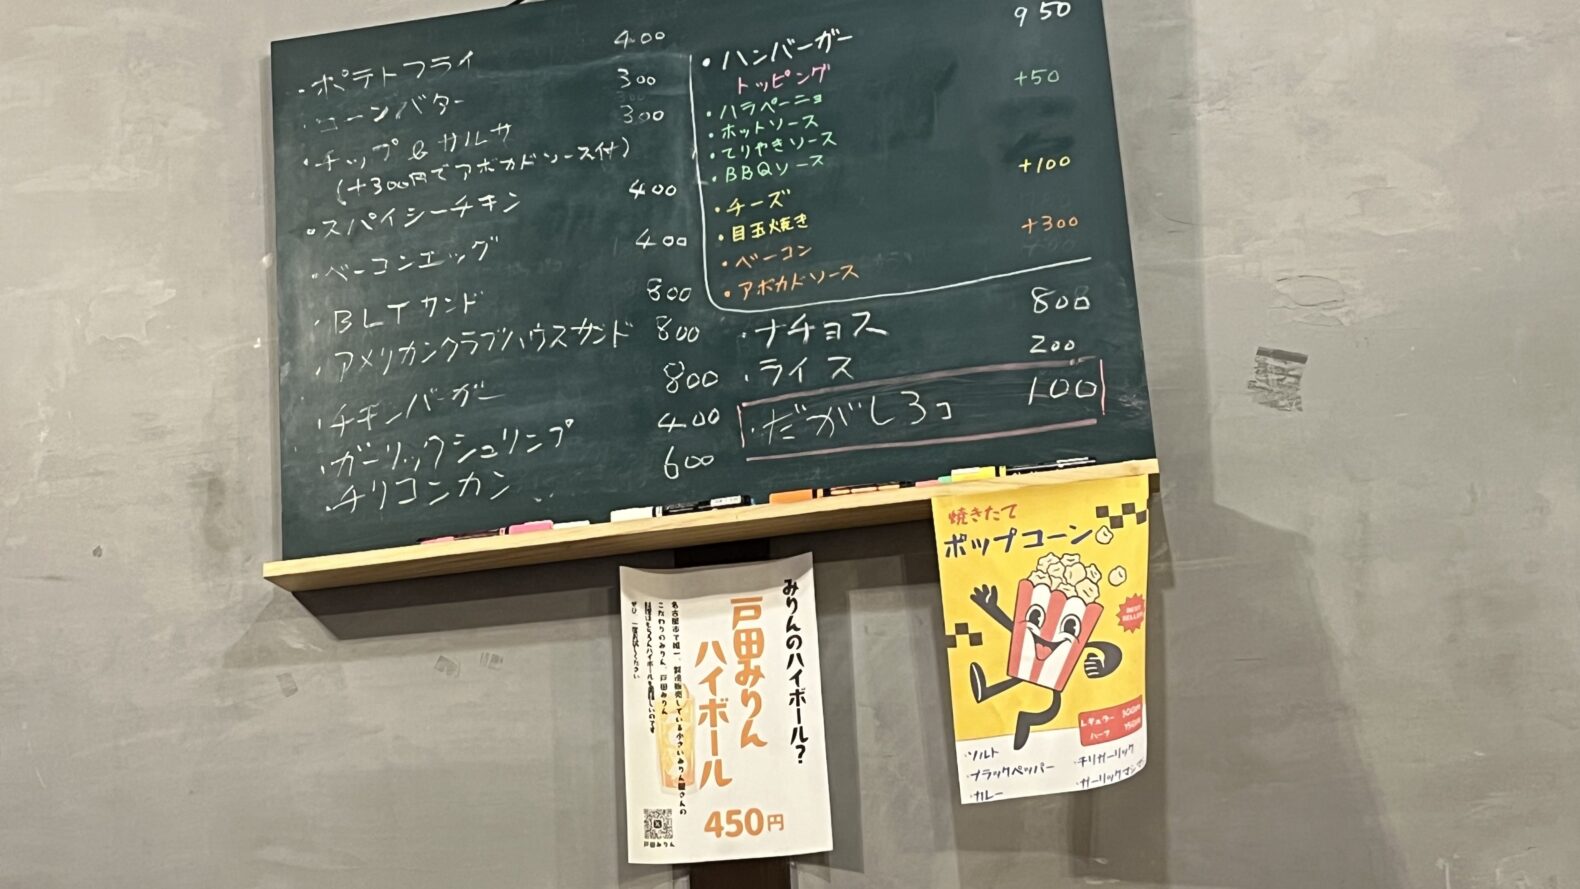 ・ポテトフライ 400
・コーンバター 300
・チップ&サルサ 300
(+300円でアボカドソース付)
・スパイシーチキン 400
・ベーコンエッグ 400
・BLTサンド 800
・アメリカンクラブハウスサンド 800
・チキンバーガー 800
・ガーリックシュリンプ 400
・チリコンカン 600
・ハンバーガー 950
トッピング
・ハラペーニョ +50
・ホットソース
・てりやきソース
・BBQソース
・チーズ +100
・目玉焼き
・ベーコン +300
・アボカドソース
・ナチョス 800
・ライス 200
・だがしろコ 100
みりんのハイボール?
戸田みりん
ハイボール
名古屋市で唯一、製造販売している小さいみりん屋さんの
こだわりのみりん、戸田みりん
ぜひ、一度お試しください
450円
戸田みりん
焼きたて
ポップコーン
BEST
SELLER
レギュラー 300円
ハーフ 150円
・ソルト
・ブラックペッパー
・カレー
・チリガーリック